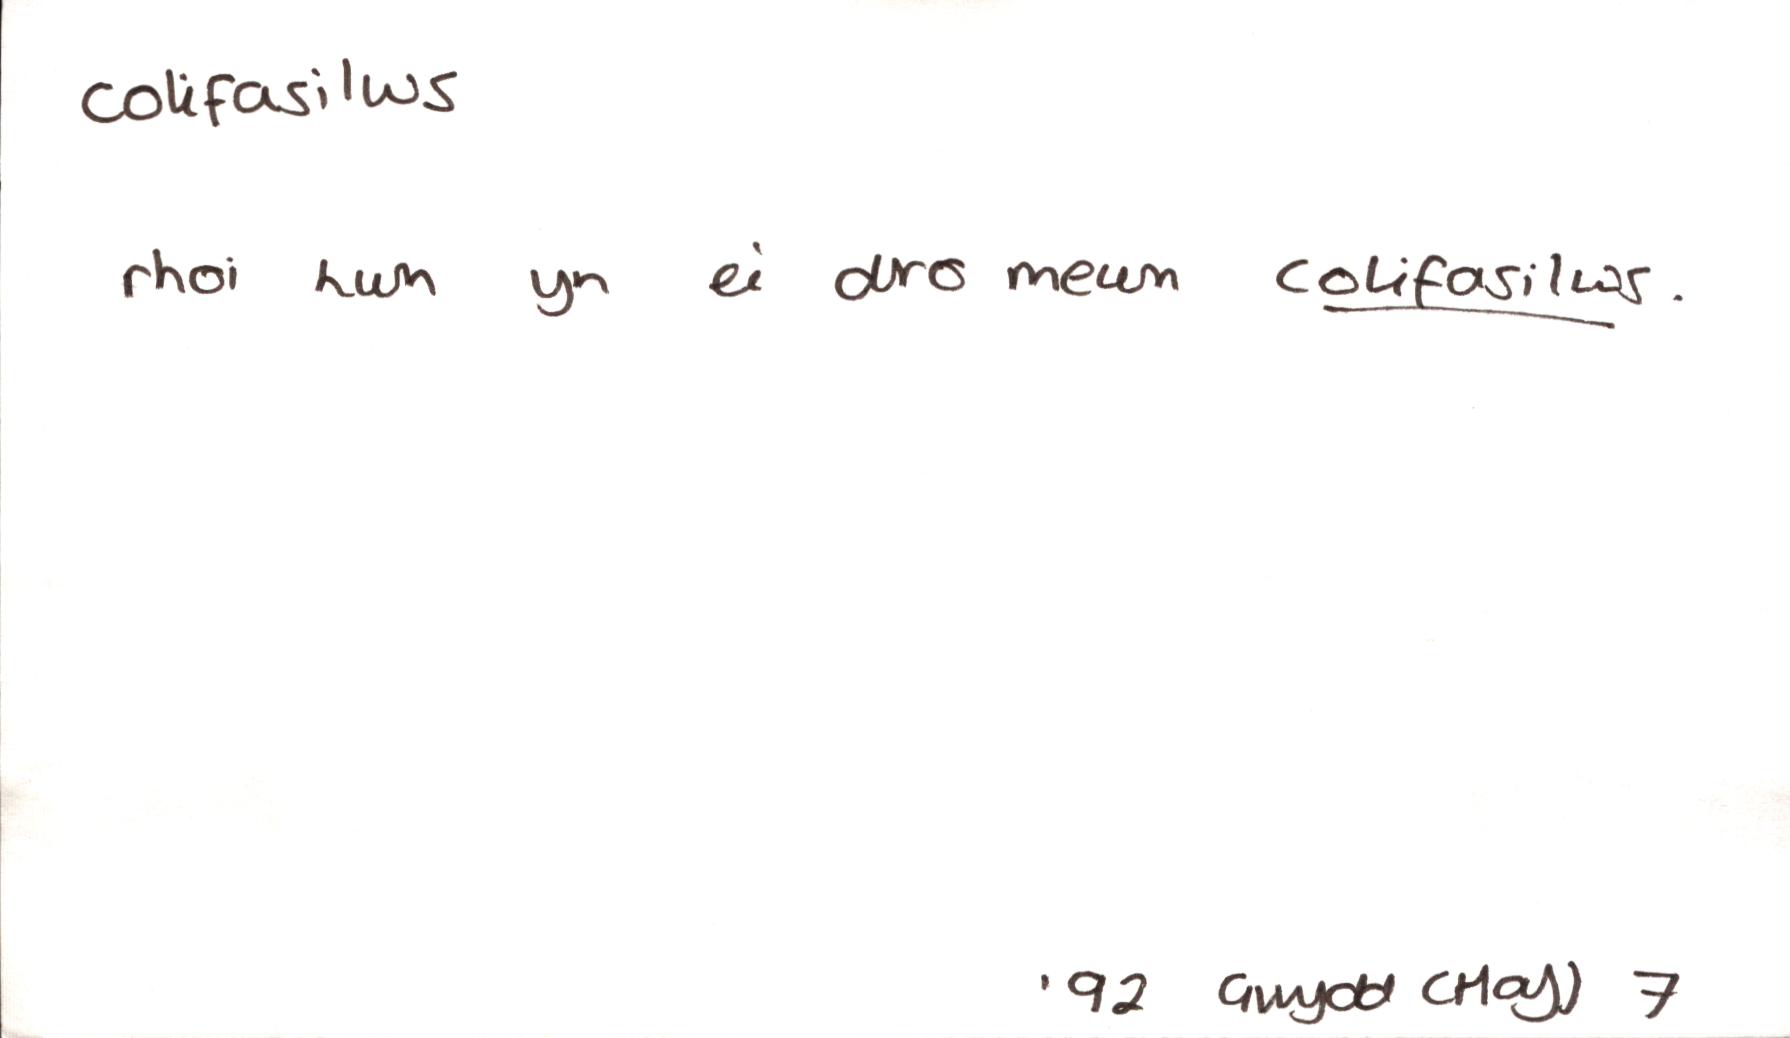 colifasilws
rhoi hwn yn ei dro mewn colifasilws.
'92 Gwydd (Haf) 7